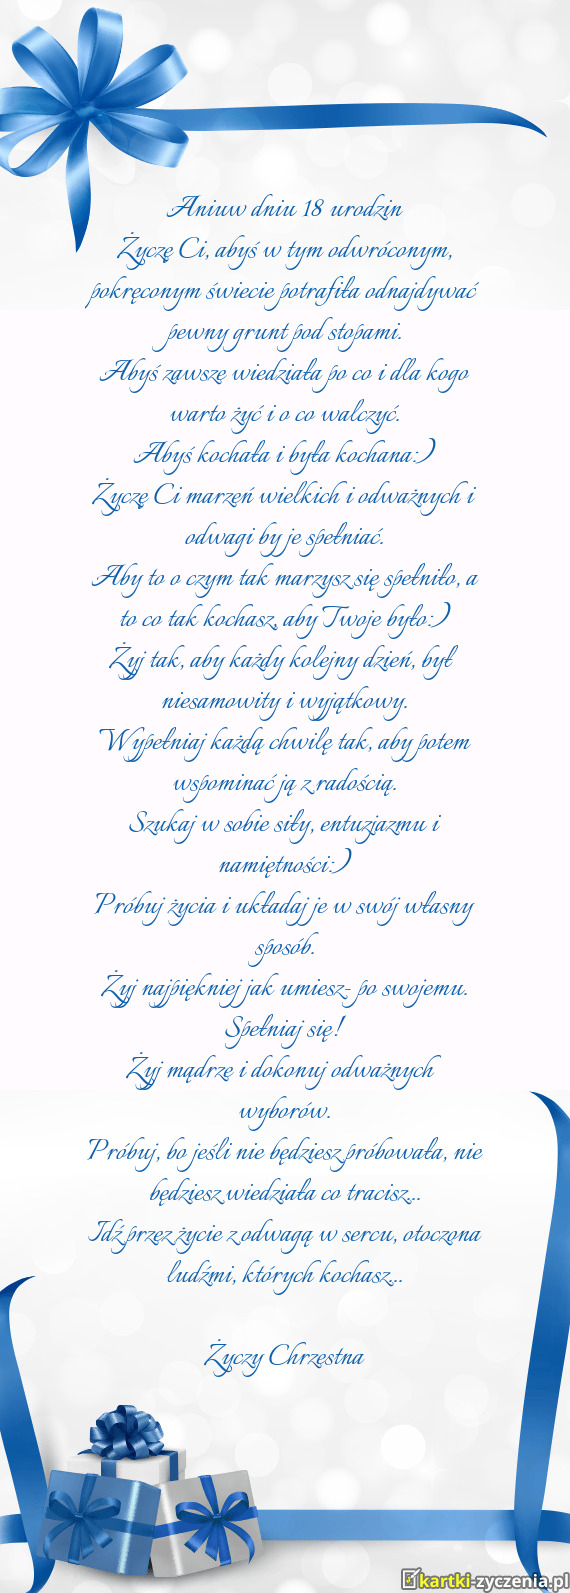 Aniuw dniu 18 urodzin
Życzę Ci, abyś w tym odwróconym,
pokręconym świecie potrafiła odnajdywać
pewny grunt pod stopami.
Abyś zawsze wiedziała po co i dla kogo
warto żyć i o co walczyć.
Abyś kochała i była kochana:)
Życzę Ci marzeń wielkich i odważnych i
odwagi by je spełniać.
Aby to o czym tak marzysz się spełniło, a
to co tak kochasz, aby Twoje było:)
Żyj tak, aby każdy kolejny dzień, był
niesamowity i wyjątkowy.
Wypełniaj każdą chwilę tak, aby potem
wspominać ją z radością.
Szukaj w sobie siły, entuzjazmu i
namiętności:)
Próbuj życia i układaj je w swój własny
sposób.
Żyj najpiękniej jak umiesz- po swojemu.
Spełniaj się!
Żyj mądrze i dokonuj odważnych
wyborów.
Próbuj, bo jeśli nie będziesz próbowała, nie
będziesz wiedziała co tracisz...
Idź przez życie z odwagą w sercu, otoczona
ludźmi, których kochasz...
Życzy Chrzestna
kartki-zyczenia.pl